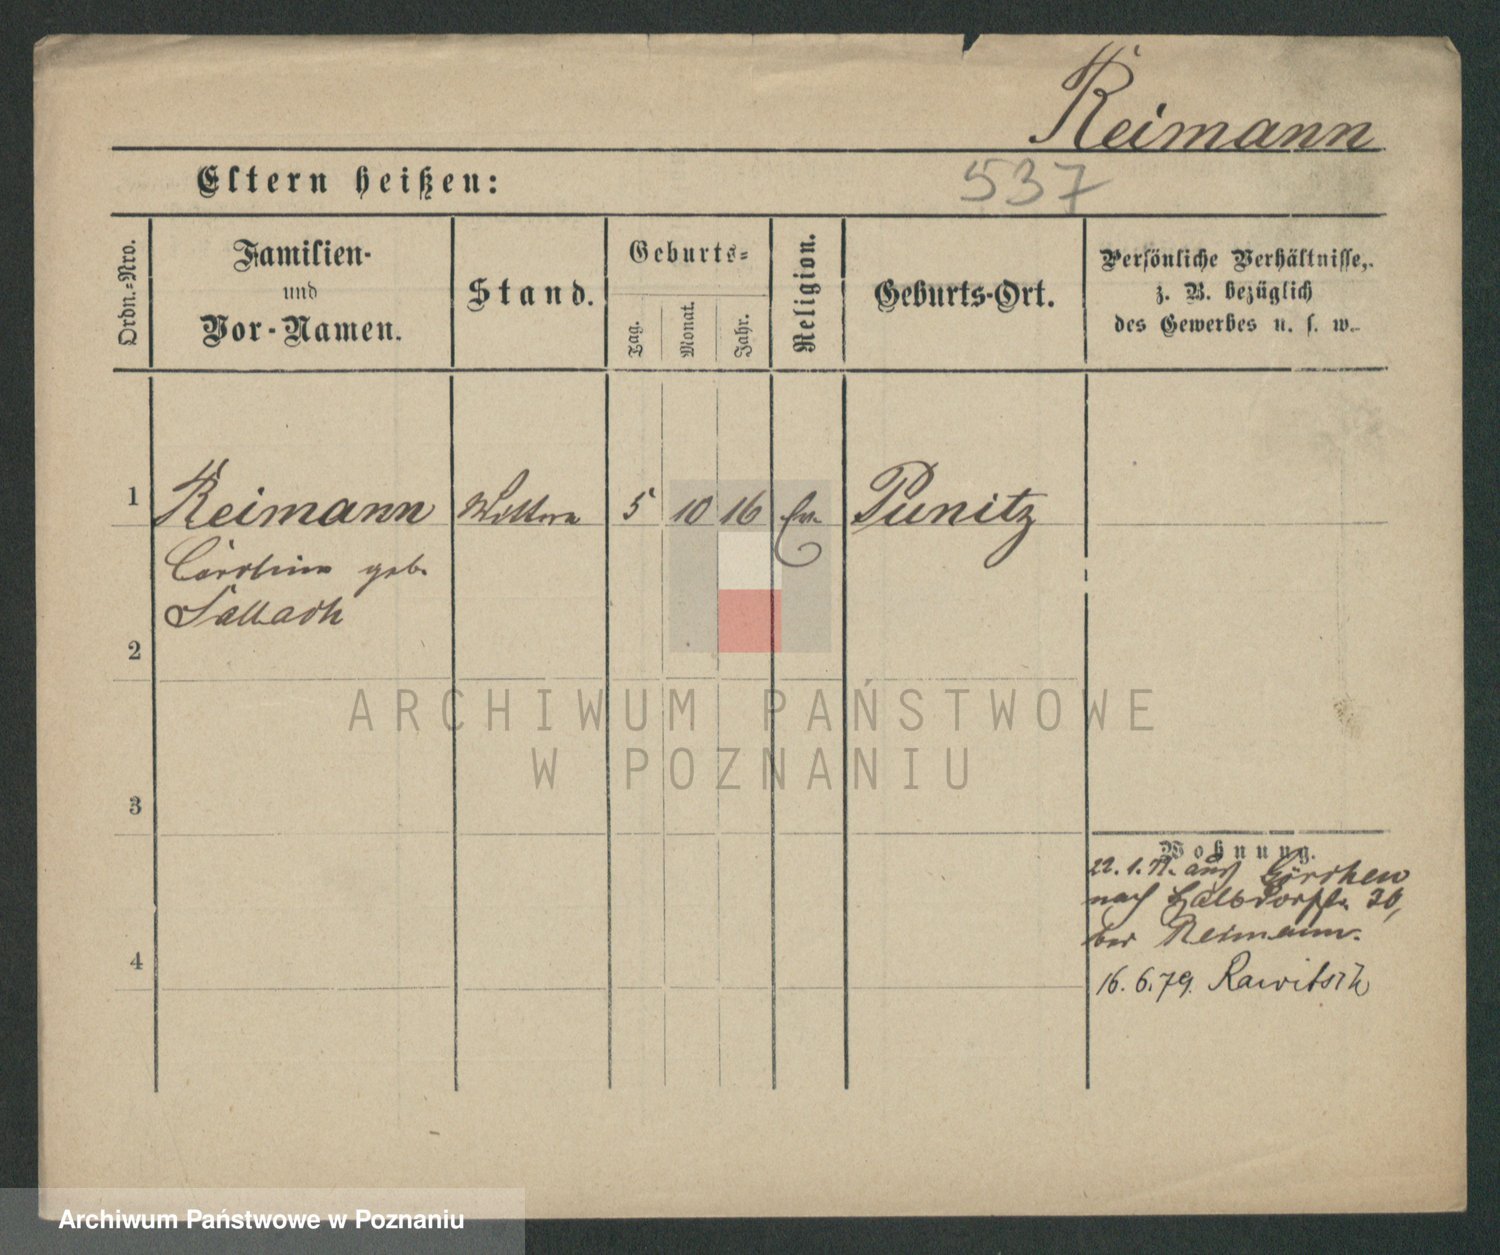 Reimann
537
Eltern heißen:
Ordn.-Nro.
Familien-
und
Vor-Namen.
Stand.
Geburts-
Tag.
Monat.
Jahr.
Religion.
Geburts-Ort.
Persönliche Verhältnisse,
z. B. bezüglich
des Gewerbes u. s. w.
1
Reimann
5
10
16
Ev.
Punitz
geb.
2
3
4
Wohnung.
22. 1. aus Görchen
nach Halbdorfstr.
bei Reimann.
16. 6. 79. Rawitsch
ARCHIWUM PAŃSTWOWE
W POZNANIU
Archiwum Państwowe w Poznaniu